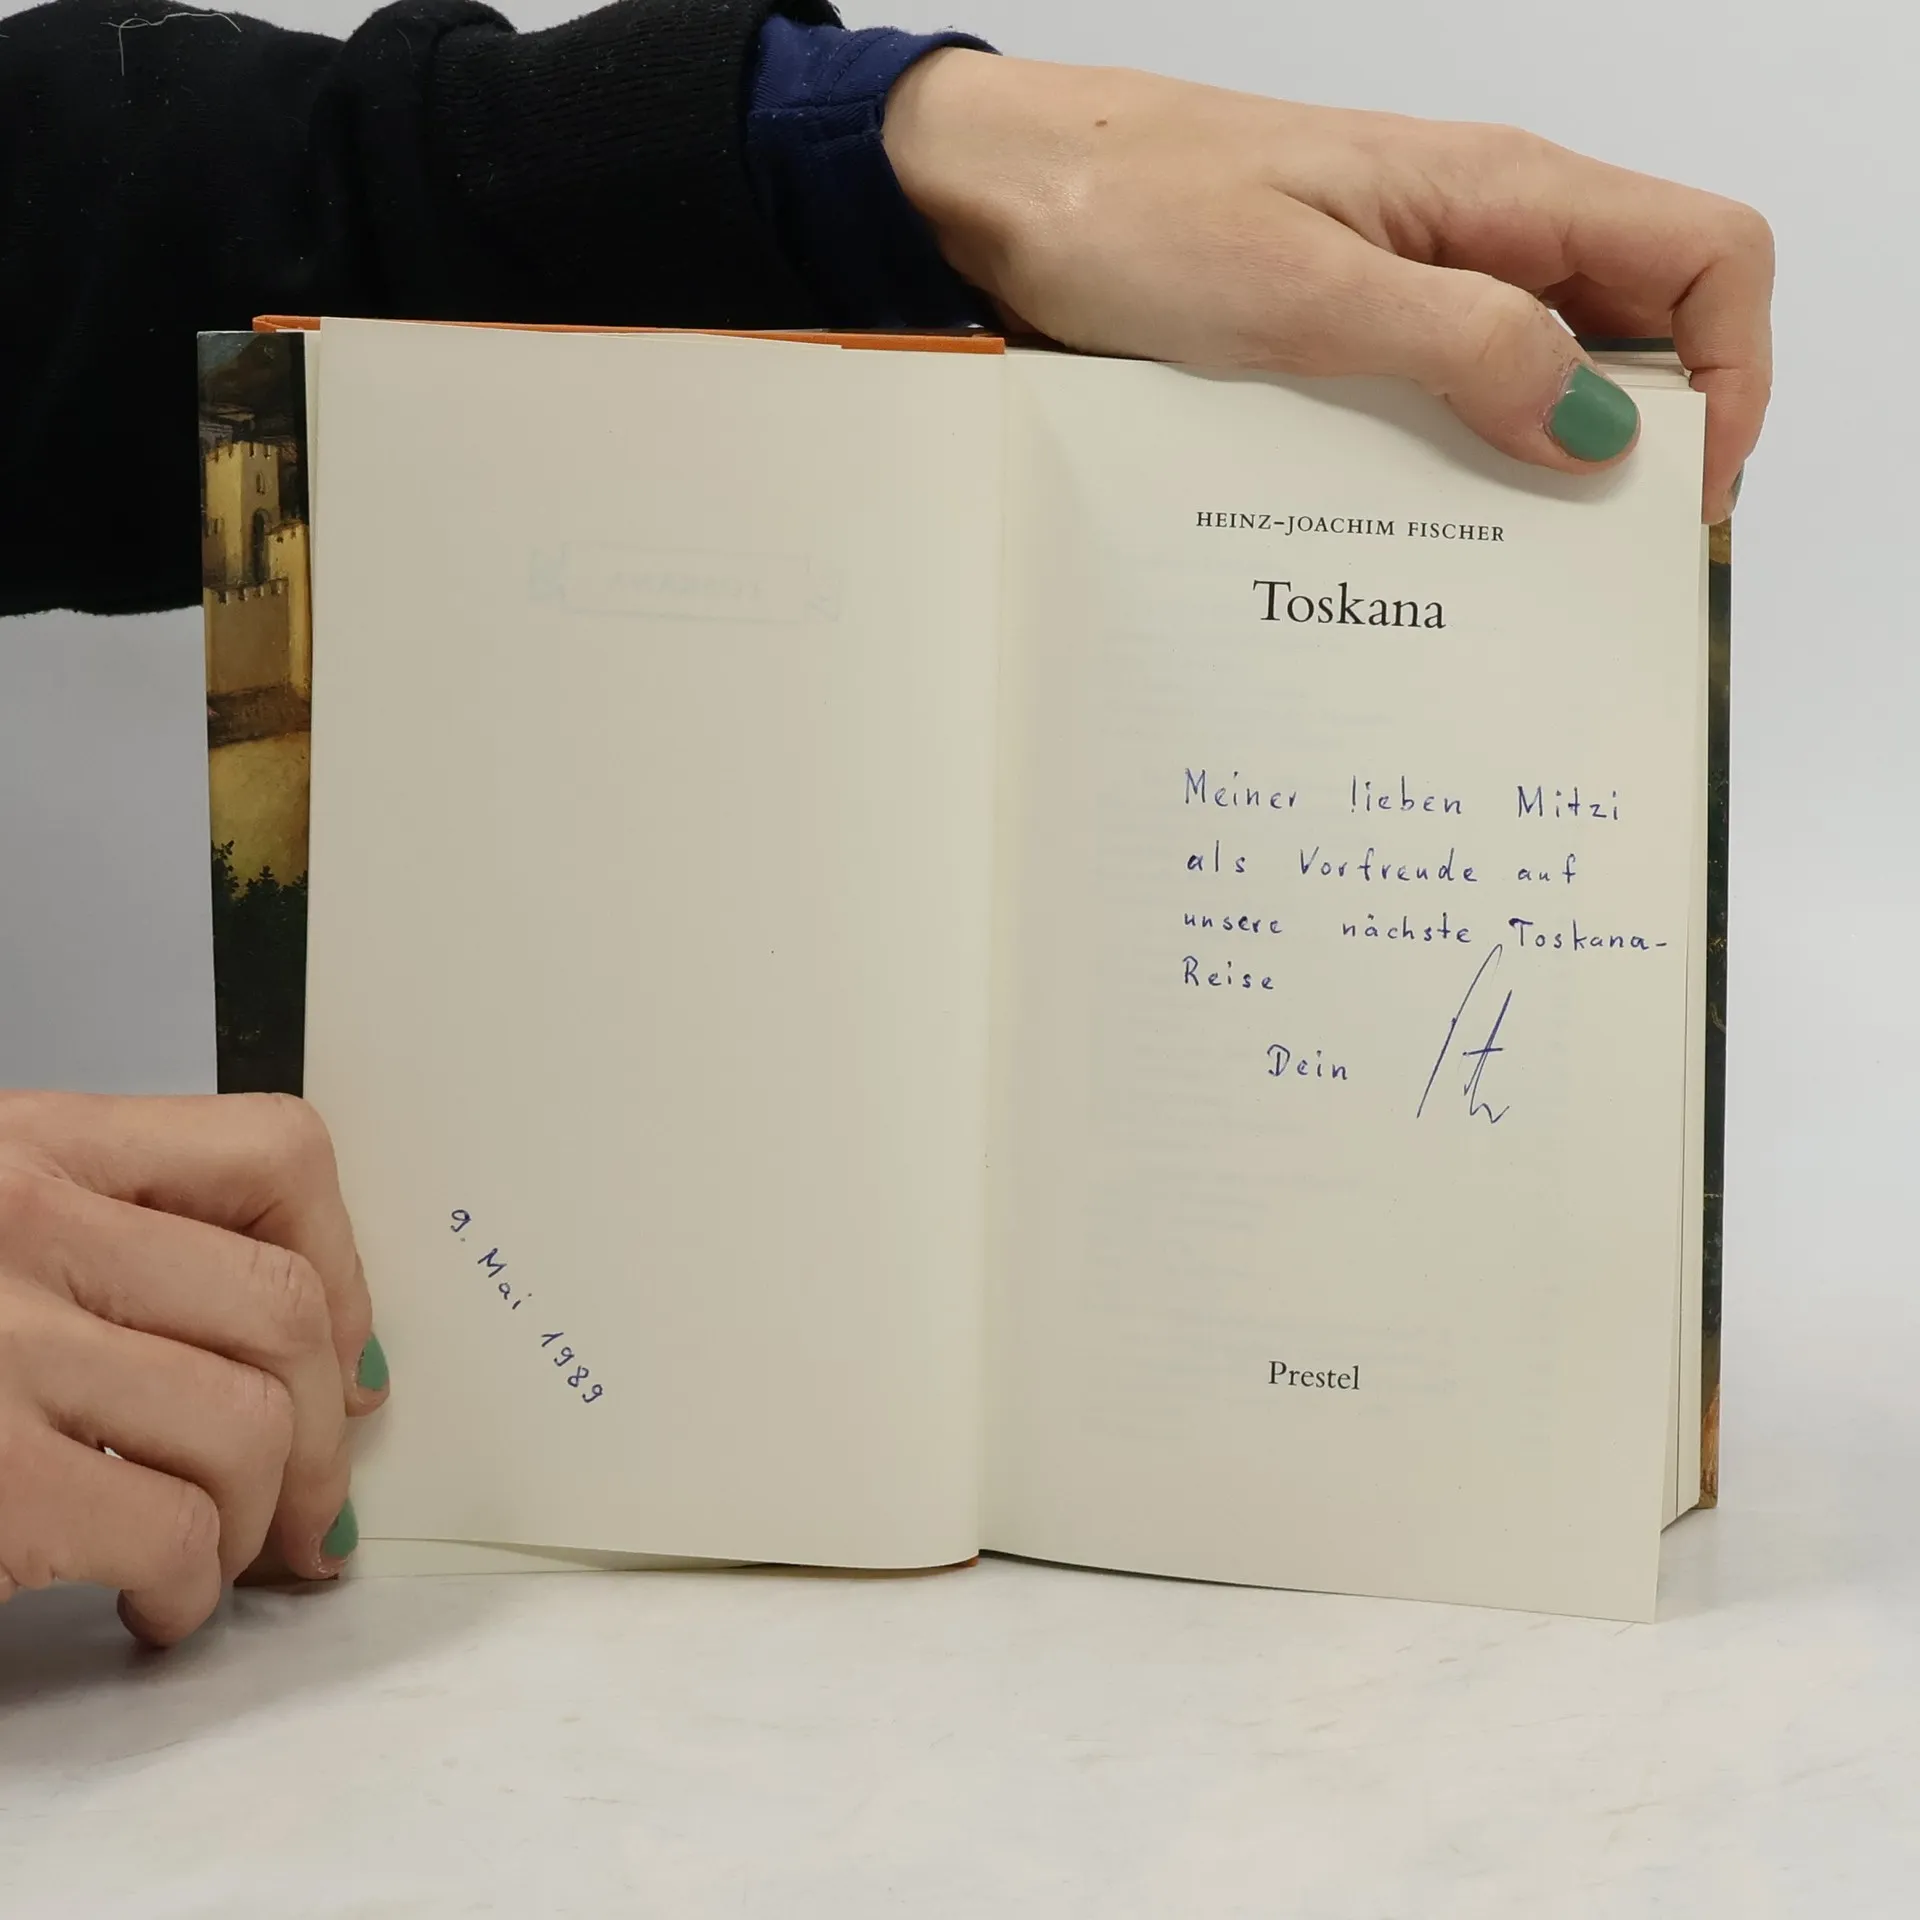 9. Mai 1989
HEINZ-JOACHIM FISCHER
Toskana
Meiner lieben Mitzi
als Vorfreude auf
unsere nächste Toskana-
Reise
Dein
Prestel